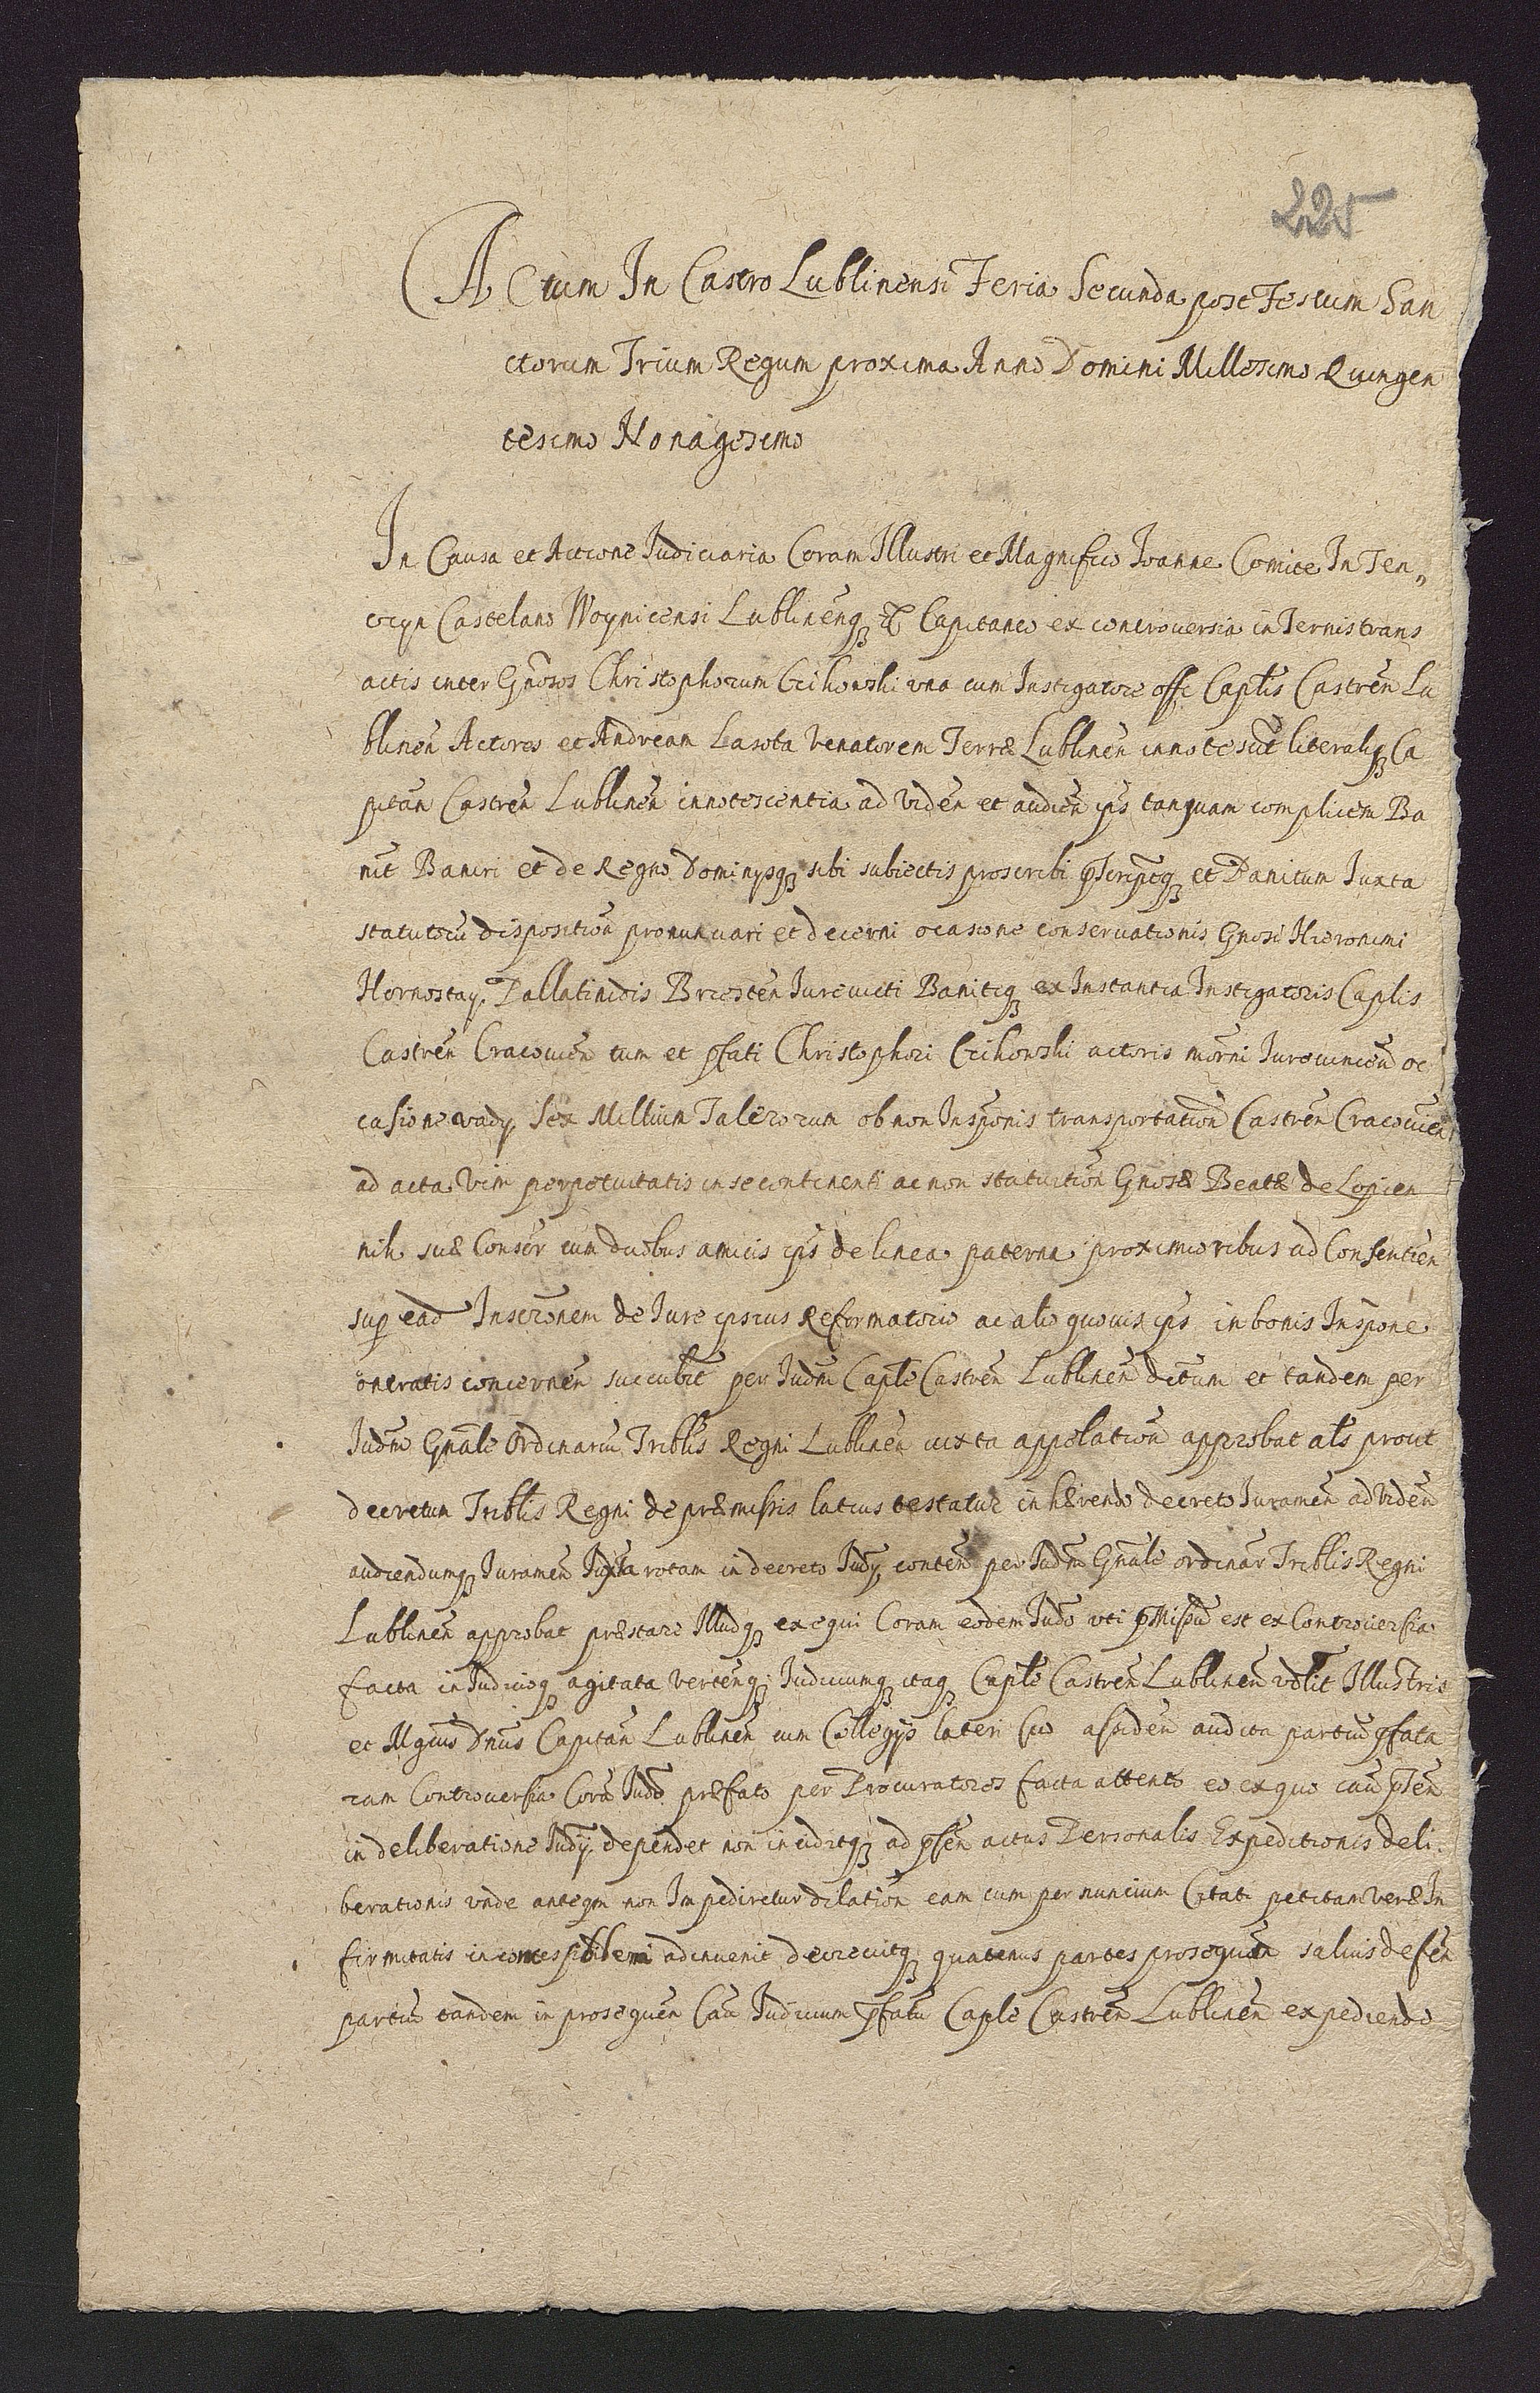 225
Actum In Castro Lublinensi Feria Secunda post Festum San
ctorum Trium Regum proxima Anno Domini Millesimo Quingen
tesimo Nonagesimo
In Causa et Actione Iudiciaria Coram Illustri et Magnifico Ioanne Comite In Ten„
czyn Castelano Woynicensi Lublinenq3 Capitaneo ex controversia in Ternis trans
actis inter Gnosos Christophorum Czihowski una cum Instigatore offi Caplis Castren Lu
blinen Actores et Andream Lasota Venatorem Terræ Lublinen innotescit literaliq3 Ca
pitan Castren Lublinen innotescentia ad viden et audien ips tanquam complicem Ba
nit Baniri et de Regno Dominysq3 sibi subiectis proscribi pscriptq3 et Banitum Iuxta
statutoru disposition pronunciari et decerni ocasione conservationis Gnosi Hieronimi
Hornostay Pallatinidis Brzesten Iurevicti Banitiq3 ex Instantia Instigatoris Caplis
Castren Cracovien tum et pfati Christophori Czihowski actoris moderni Iurevincen oc
casione vady Sex Millium Talerorum ob non Insponis transportation Castren Cracovien
ad acta vim perpetuitatis in se continenti ac non statuition Gnosæ Beatæ de Lopien
nik suæ Consor cum duobus amicis ips de linea paterna proximioribus ad Consentien
sup ead Inscronem de Iure ipsius Reformatorio ac alio quovis ips in bonis Inspone
oneratis concernen succubit per Iudm Caple Castren Lublinen dictum et tandem per
Iudm Gnale Ordinariu Triblis Regni Lublinen iuxta appelation approbat als prout
decretum Triblis Regni de præmissis latius testatur inhærendo decreto Iuramen ad viden
audiendumq3 Iuramen Iuxta rotam in decreto Iudy conten per Iudm Gnale ordinar Triblis Regni
Lublinen approbat præstare Illudq3 exequi Coram eodem Iudo uti pMissu est ex Controversia
facta in Iudicioq3 agitata vertenq3 Iudiciumq3 itaq3 Caple Castren Lublinen vdlit Illustris
et Mgcus Dnus Capitan Lublinen cum Collegijs lateri suo assiden audita partiu pfata
rum Controversia Cora Iudo præfato per Procuratores facta attento eo ex quo cau psen
in deliberatione Iudy dependet non inciditq3 ad psen actus Personalis Expeditionis deli
berationis unde anteqm non Impediretur dilation eam cum per nuncium Citati petitam veræ In
firmitatis inconcessibilem adinvenit decrevitq3 quatenus partes prosequan salvis defen
partiu tandem in prosequen Cau Iudicium pfatu Caple Castren Lublinen expediendo